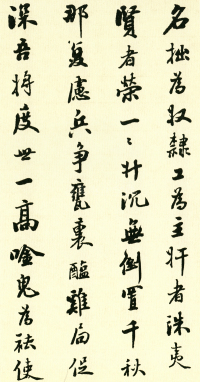 名拙為奴隸工為主奸者誅夷
賢者榮一〻升沉無倒置千秋
那复慮兵争甕裏醯雞局促
深吾將度世一高唫鬼為祛使